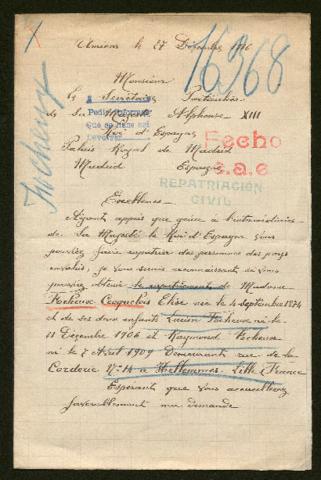 Amiens le 27 Décembre 1916
16368
Monsieur
le Secrétaire Particulier
de Sa Majesté Alphonse XIII
Roi d'Espagne
Palais Royal de Madrid
Madrid Espagne
Fecho
REPATRIACIÓN
CIVIL
Excellence
Ayant appris que grâce à l'intermédiaire
de Sa Majesté le Roi d'Espagne vous
pouviez faire rapatrier des personnes des pays
envahis, je vous serais reconnaissant si vous
pouviez obtenir le rapatriement de Madame
Elise née le 4 septembre 1874
et de ses deux enfants Lucien né le
11 Décembre 1906 et Raymond
né le 7 Août 1909 Demeurant rue de la
Corderie No 14 à Hellemmes. Lille France
Espérant que vous accueillerez
favorablement ma demande